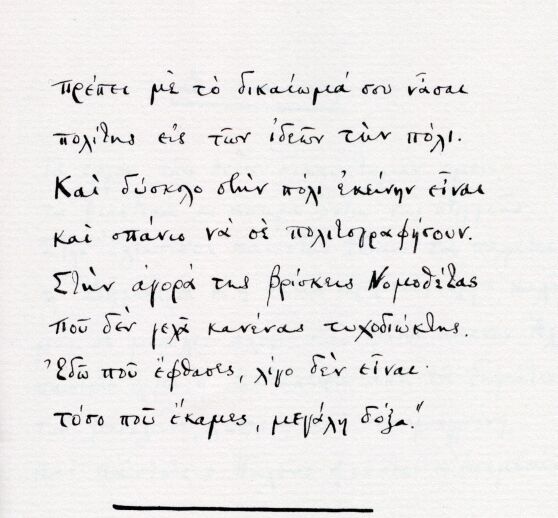 πρέπει μὲ τὸ δικαίωμά σου νἆσαι
πολίτης εἰς τῶν ἰδεῶν τὴν πόλι.
Καὶ δύσκολο στὴν πόλι ἐκείνην εἶναι
καὶ σπάνιο νὰ σὲ πολιτογραφήσουν.
Στὴν ἀγορά της βρίσκεις Νομοθέτας
ποῦ δὲν γελᾶ κανένας τυχοδιώκτης.
Ἐδῶ ποῦ ἔφθασες, λίγο δὲν εἶναι·
τόσο ποῦ ἔκαμες, μεγάλη δόξα."